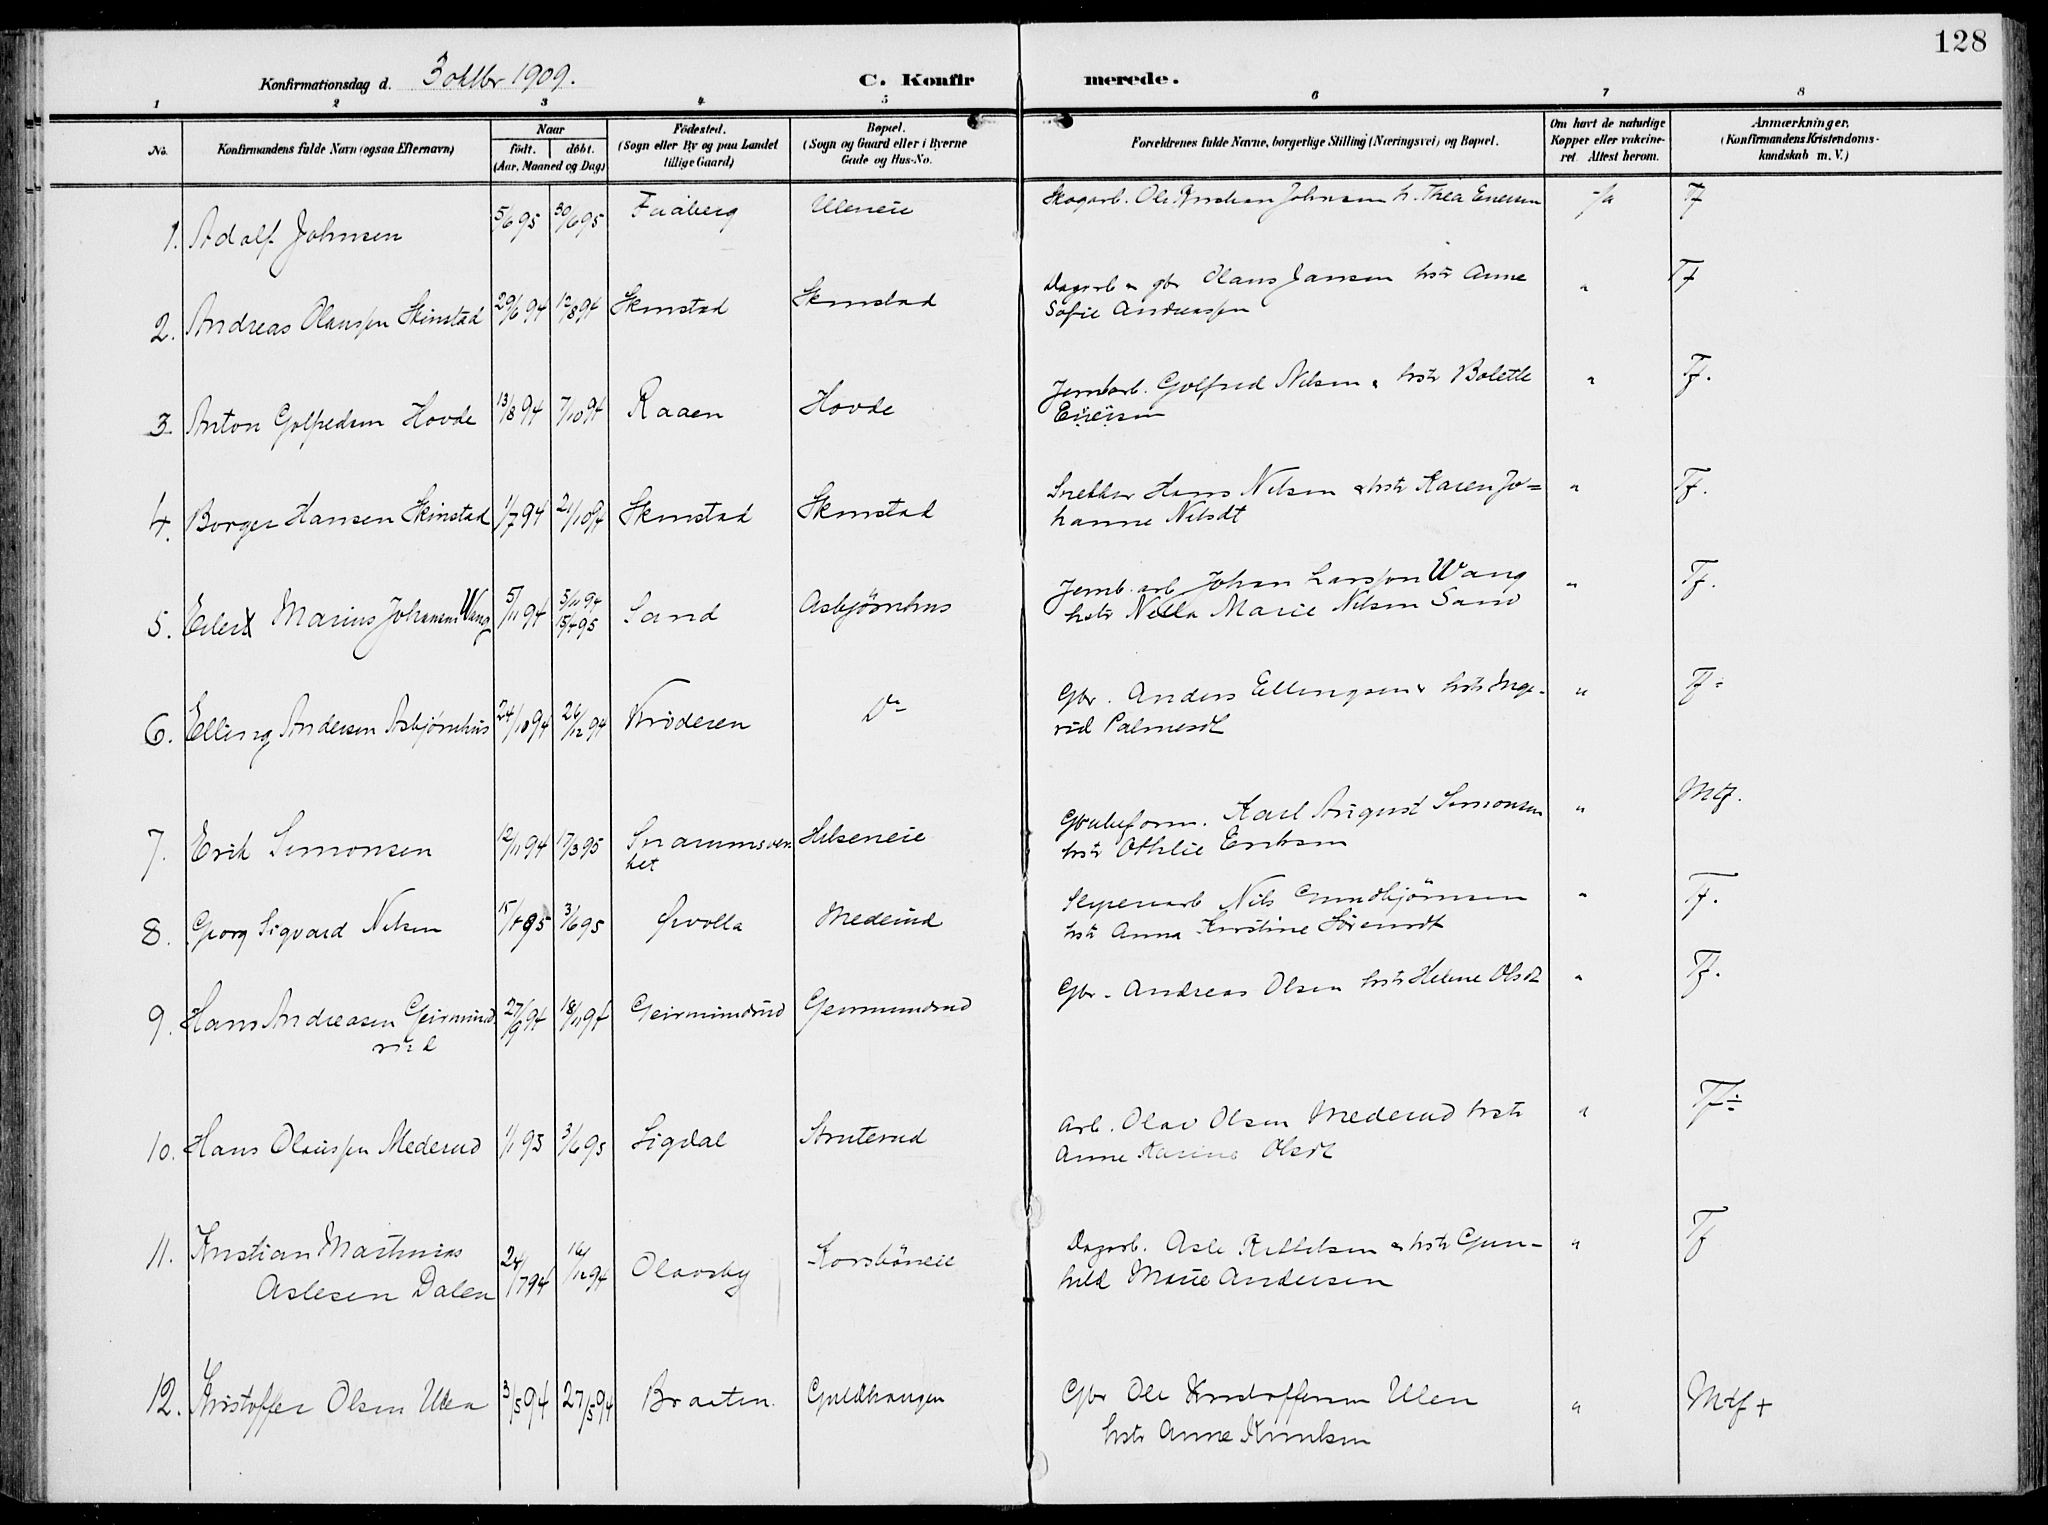 128
Konfirmationsdag d. 3 oktbr 1909.
C. Konfirmerede.
1 2 3 4 5 6 7 8
No.
Konfirmandens fulde Navn (ogsaa Efternavn)
Naar
født. døbt.
(Aar, Maaned og Dag)
Fødested.
(Sogn eller By og paa Landet
tillige Gaard)
Bopæl.
(Sogn og Gaard eller i Byerne
Gade og Hus-No.
Forældrenes fulde Navne, borgerlige Stilling (Næringsvei) og Bopæl.
Om havt de naturlige
Kopper eller vakcine-
ret. Attest herom.
Anmærkninger.
(Konfirmandens Kristendoms-
kundskab m. V.)
1. Adolf Johnsen 5/6 95 30/6 95 Faaberg Uleneie Skogarb. Ole Kristian Johnsen h. Thea Enersen Tf
2. Andreas Olaussen Skinstad 29/6 94 12/8 94 Skinstad Skinstad Dagarb & gbr Olaus Jansen hstr Anne
Sofie Andreassen " Tf
3. Anton Golfredsen Hovde 13/8 94 7/10 94 Raaen Hovde Jernbarb. Golfred Nilsen & hstr Bolette
" Tf.
4. Borger Hansen Skinstad 1/7 94 21/10 94 Skinstad Skinstad Snekker Hans Nilsen & hstr Karen Jo=
hanne Nilsdt " Tf.
5. Eilert Marius Johansen Wang 5/11 94 5/11 94
15/4 95 Sand Asbjørnhus Jernb. arb Johan Larssen Wang
hstr Nella Marie Nilsen Sand " Tf.
6. Elling Andersen Asbjørnhus 24/10 94 26/12 94 Krøderen Do Gbr. Anders Ellingsen & hstr Inge-
rid Palmesdt " Tf-
7. Erik Simonsen 12/11 94 17/3 95 Snarumsver-
ket Helseneie Grubeform. Karl August Simonsen
hstr Othilie Eriksen " Mtf.
8. Georg Sigvard Nilsen 15/4 95 3/6 95 Mederud Sliperiarb Nils Gundbjørnsen
hstr Anna Kirstine Sørensdt " Tf.
9. Hans Andreasen Geirmund-
rud 27/9 94 18/11 94 Geirmundrud Geirmundrud Gbr. Andreas Olsen hstr Helene Olsdt " Tf.
10. Hans Olaussen Mederud 1/1 95 3/6 95 Sigdal Struterud Arb. Olav Olsen Mederud hstr
Anne Karine Olsdt " Tf÷
11. Kristian Mathias
Aslesen Dalen 24/7 94 16/12 94 Olavsby Korsbøneie Dagarb. Asle Kittilsen & hstr Gun-
hild Marie Andersen " Tf
12. Kristoffer Olsen Ulen 3/5 94 27/5 94 Braaten Guldhaugen Gbr Ole Kristoffersen Ulen
hstr Anne Knudsen " Mtf +